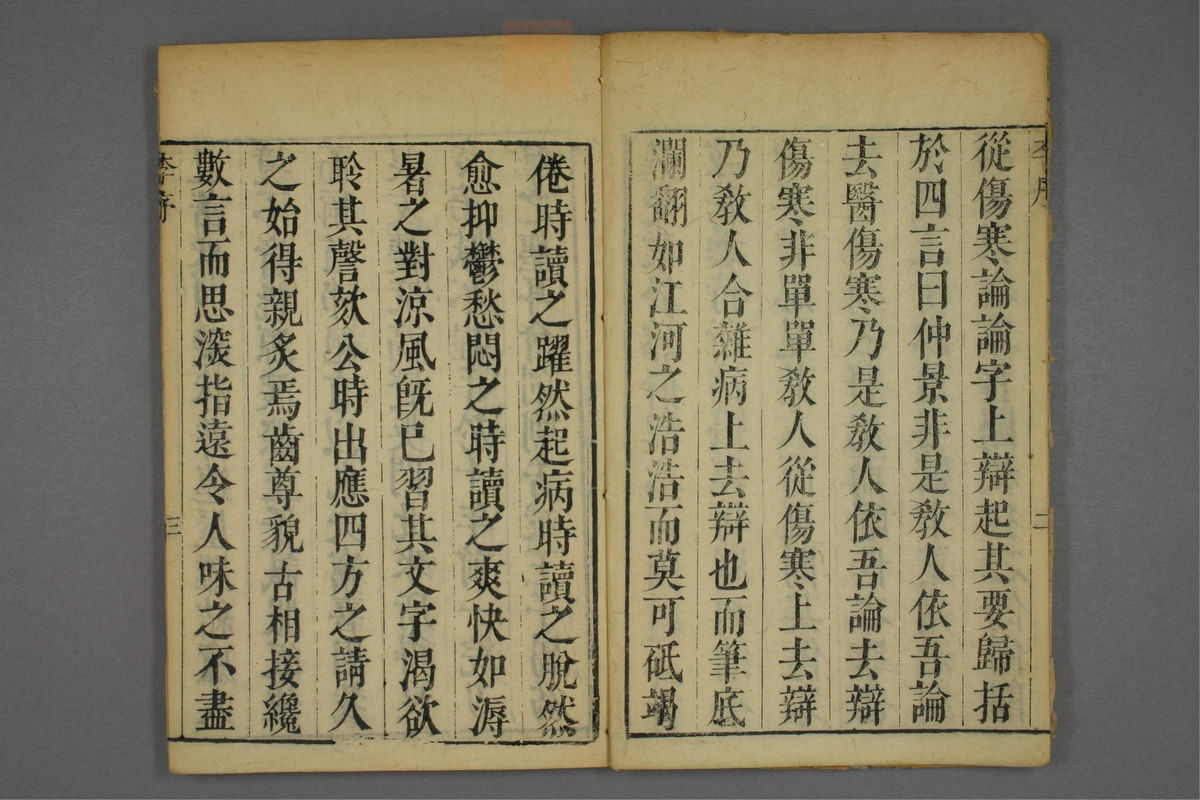 從傷寒論論字上辯起其要歸括
於四言曰仲景非是教人依吾論
去醫傷寒乃是教人依吾論去辯
傷寒非單單教人從傷寒上去辯
乃教人合雜病上去辯也而筆底
瀾翻如江河之浩浩而莫可砥竭
二
倦時讀之躍然起病時讀之脫然
愈抑鬱愁悶之時讀之爽快如溽
暑之對涼風旣已習其文字渴欲
聆其謦欬公時出應四方之請久
之始得親炙焉齒尊貌古相接纔
數言而思深指遠令人味之不盡
李序
三